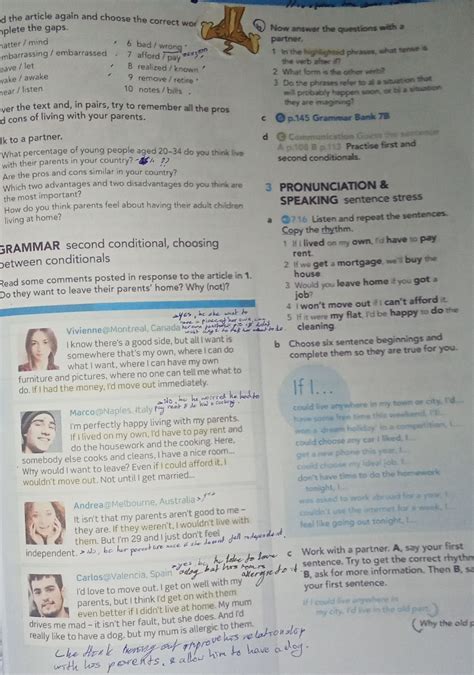 d the article again and choose the correct wor
plete the gaps.
natter / mind
mbarrassing / embarrassed
eave / let
wake / awake
near / listen
6 bad / wrong
7 afford / pay
8 realized / known
9 remove / retire
10 notes / bills
ver the text and, in pairs, try to remember all the pros
d cons of living with your parents.
lk to a partner.
What percentage of young people aged 20–34 do you think live
with their parents in your country?
Are the pros and cons similar in your country?
Which two advantages and two disadvantages do you think are
the most important?
How do you think parents feel about having their adult children
living at home?
GRAMMAR second conditional, choosing
between conditionals
Read some comments posted in response to the article in 1.
Do they want to leave their parents' home? Why (not)?
Vivienne@Montreal, Canada
I know there's a good side, but all I want is
somewhere that's my own, where I can do
what I want, where I can have my own
furniture and pictures, where no one can tell me what to
do. If I had the money, I'd move out immediately.
Marco@Naples, Italy
I'm perfectly happy living with my parents.
If I lived on my own, I'd have to pay rent and
do the housework and the cooking. Here,
somebody else cooks and cleans, I have a nice room...
Why would I want to leave? Even if I could afford it, I
wouldn't move out. Not until I get married...
Andrea@Melbourne, Australia
It isn't that my parents aren't good to me –
they are. If they weren't, I wouldn't live with
them. But I'm 29 and I just don't feel
independent.
Carlos@Valencia, Spain
I'd love to move out. I get on well with my
parents, but I think I'd get on with them
even better if I didn't live at home. My mum
drives me mad – it isn't her fault, but she does. And I'd
really like to have a dog, but my mum is allergic to them.
with his parents, & allow him to have a dog.
b Now answer the questions with a
partner.
1 In the highlighted phrases, what tense is
the verb after if?
2 What form is the other verb?
3 Do the phrases refer to a a situation that
will probably happen soon, or b a situation
they are imagining?
c p.145 Grammar Bank 7B
d Communication Guess the sentence
A p.108 B p.113 Practise first and
second conditionals.
3 PRONUNCIATION &
SPEAKING sentence stress
a 7.16 Listen and repeat the sentences.
Copy the rhythm.
1 If I lived on my own, I'd have to pay
rent.
2 If we get a mortgage, we'll buy the
house.
3 Would you leave home if you got a
job?
4 I won't move out if I can't afford it.
5 If it were my flat, I'd be happy to do the
cleaning.
b Choose six sentence beginnings and
complete them so they are true for you.
If I...
could live anywhere in my town or city, I'd...
have some free time this weekend, I'll...
won a 'dream holiday' in a competition, I...
could choose any car I liked, I...
get a new phone this year, I...
could choose my ideal job, I...
don't have time to do the homework
tonight, I...
was asked to work abroad for a year, I...
couldn't use the internet for a week, I...
feel like going out tonight, I...
c Work with a partner. A, say your first
sentence. Try to get the correct rhythm
B, ask for more information. Then B, sa
your first sentence.
If I could live anywhere in
my city, I'd live in the old part.
Why the old p